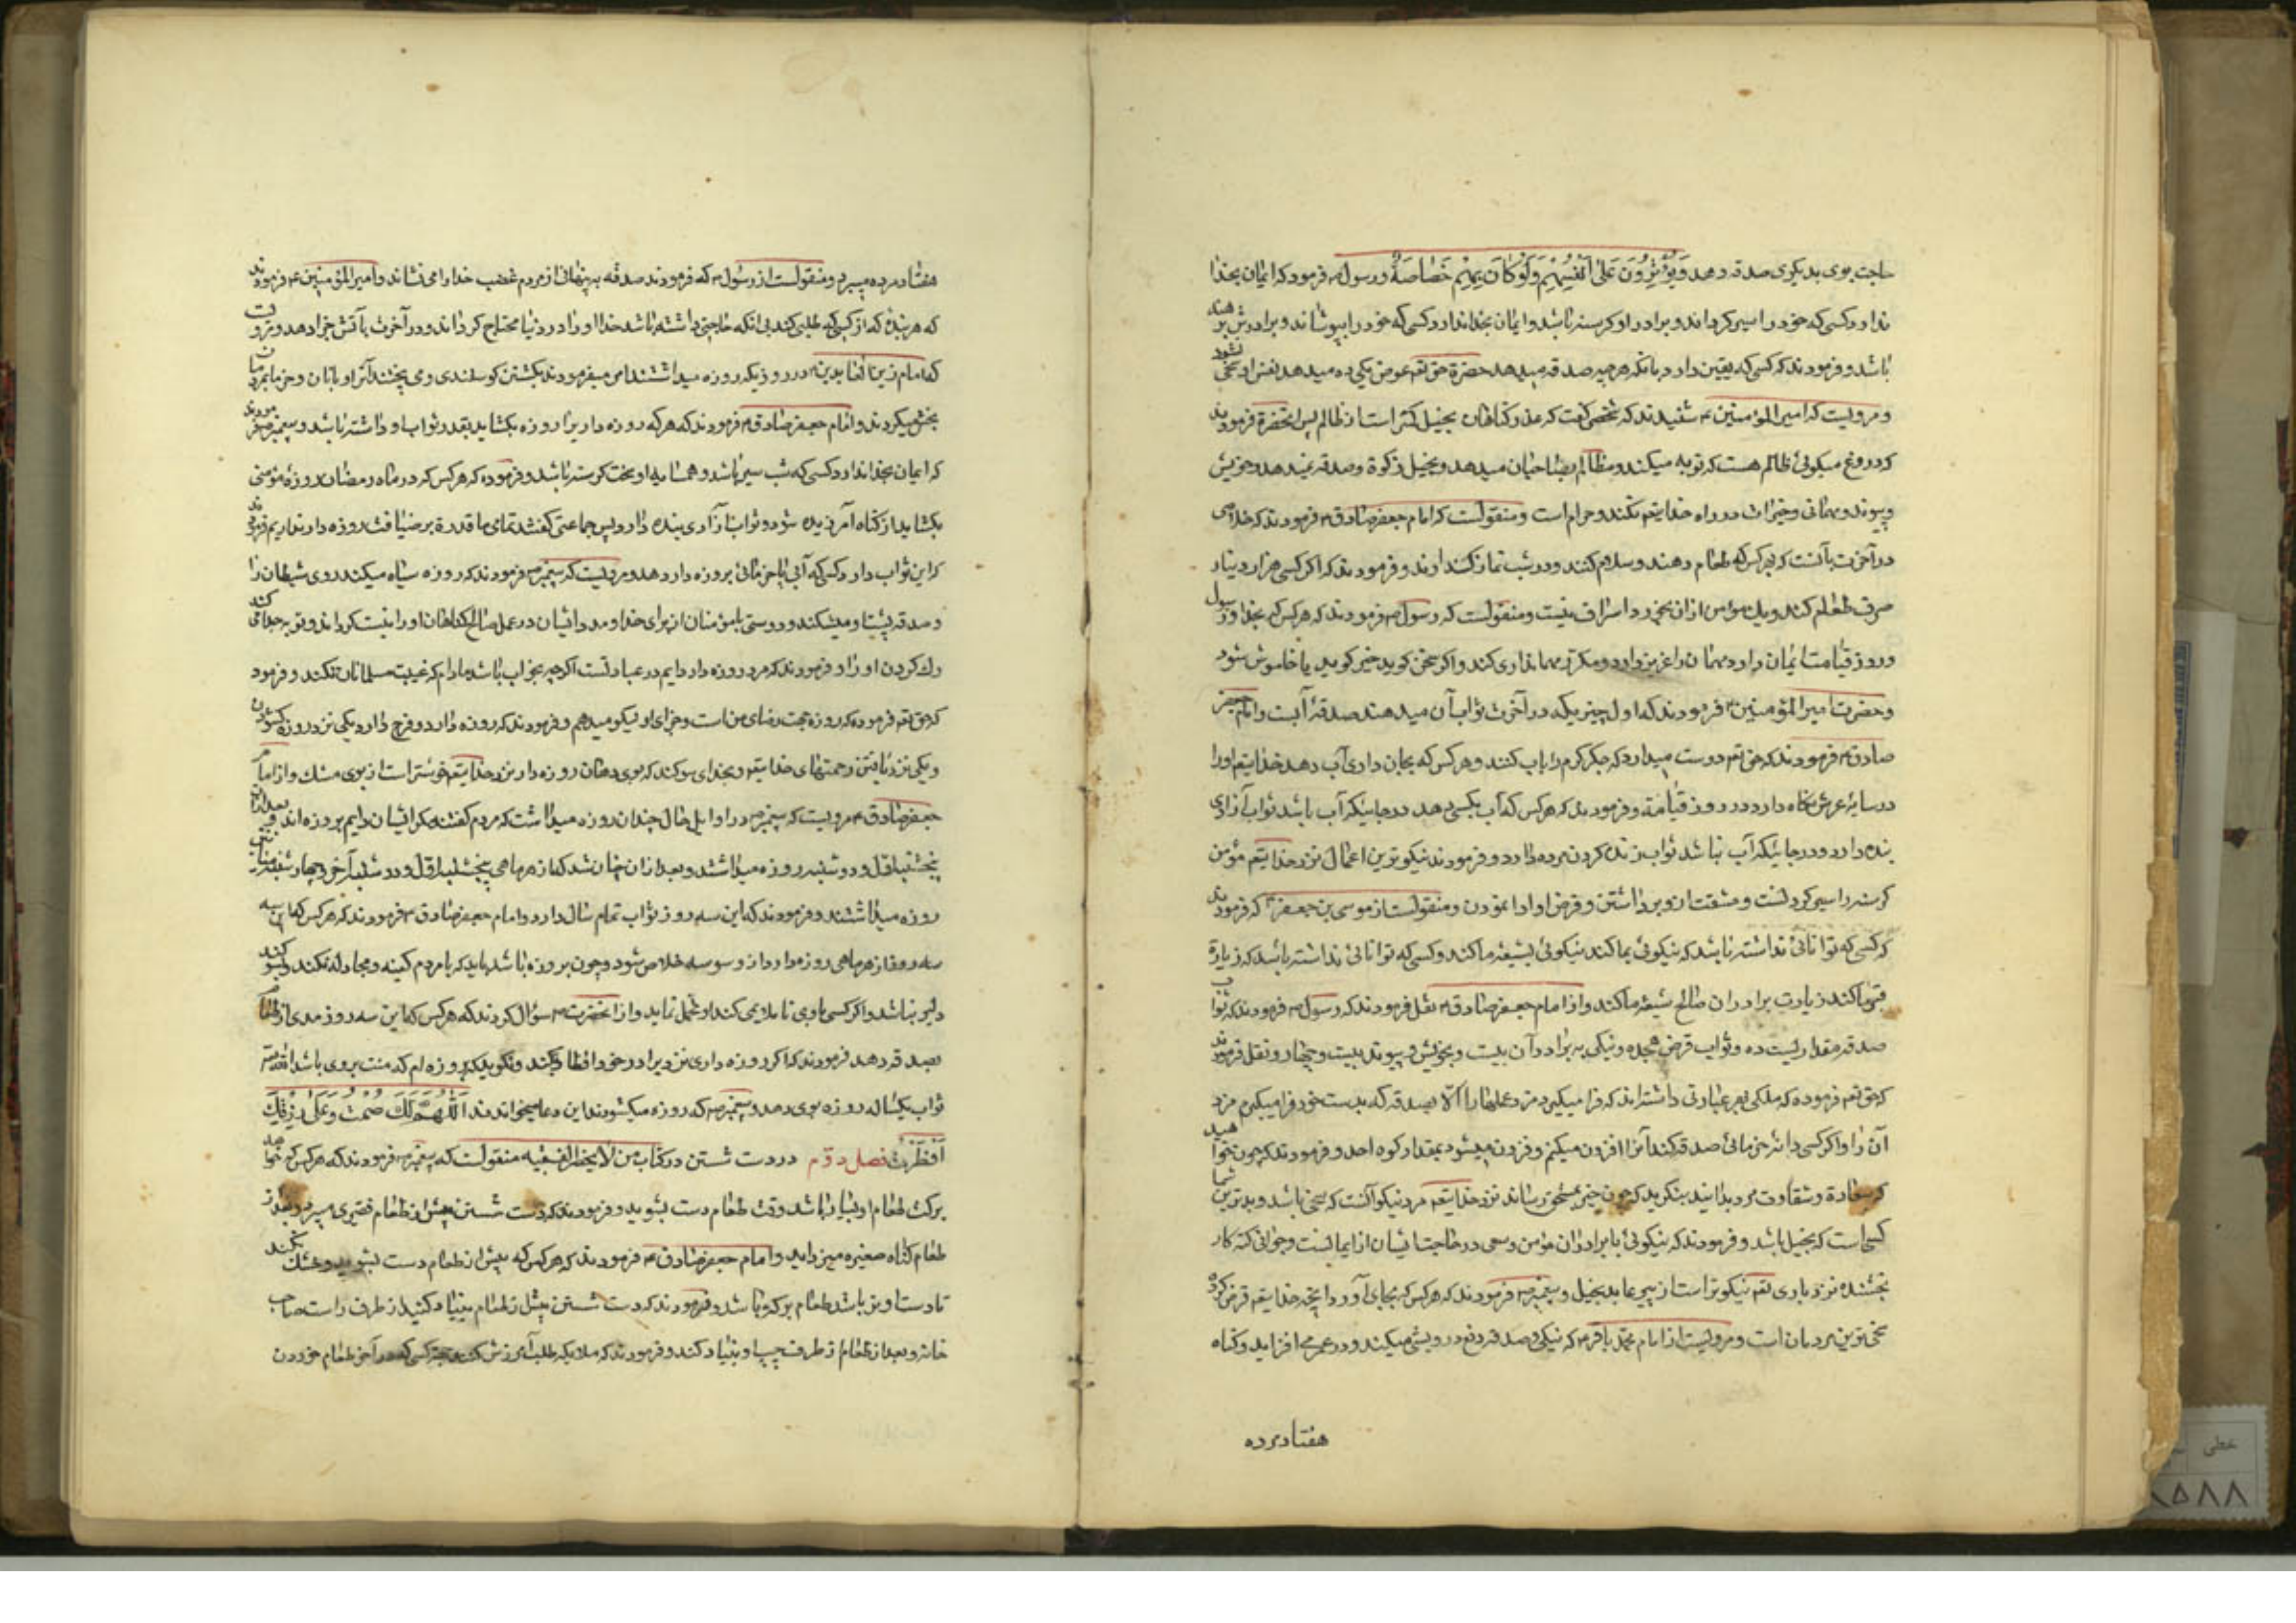 حاجت بوی بدیگری صدقه دهد وَيُؤْثِرُونَ عَلىٰ اَنْفُسِهِمْ وَلَوْ كَانَ بِهِمْ خَصَاصَةٌ و رسول م فرمود که ایمان بخدا
ندارد کسی که خود را سیر کرداند و برادر او کرسنه باشد و ایمان بخدا ندارد کسی که خود را بپوشاند و برادرش برهنه
باشد و فرمودند که کسی که یقین دارد بانکه هرچه صدقه میدهد حضرة حق تعم عوض یکی ده میدهد نفس او سخی شود
و مرویست که امیر المؤمنین ع شنیدند که شخصی کفت که عذر کناهان بخیل کمتر است از ظالم پس انحضرة فرمودند
که دروغ میکوئی ظالم هست که توبه میکند و مظالم بصاحبان میدهد و بخیل زکوة و صدقه نمیدهد و خویش
و پیوند و مهمانی و خیرات در راه خدایتعم نکند و حرام است و منقولست که امام جعفر صادق م فرمودند که خلاصی
در آخرت بآنست که بهر کس که طعام دهند و سلام کنند و در شب نماز کذارند و فرمودند که اکر کسی هزار دینار
صرف طعام کند و یک مؤمن ازان بخورد اسراف نیست و منقولست که رسول م فرمودند که هرکس که بخدا و رسول
و روز قیامت ایمان دارد مهمان را عزیز دارد و مکرر مهمانداری کند و اکر سخن کوید خیر کوید یا خاموش شود
و حضرت امیر المؤمنین ع فرمودند که اول چیزیکه در آخرت ثواب آن میدهند صدقهٔ آبست و امام جعفر
صادق م فرمودند که حق تعم دوست میدارد که جکر کرم را باب کنند و هرکس که بجان داری آب دهد خدایتعم او را
در سایهٔ عرش نکاه دارد در روز قیامة و فرمودند که هرکس که آب بکسی دهد در جائیکه آب باشد ثواب آزادی
بنده دارد و در جائیکه آب نباشد ثواب زنده کردن مرده دارد و فرمودند نیکوترین اعمال نزد خدایتعم مؤمن
کرسنه را سیر کردنست و مشقت از وی برداشتن و قرض او ادا نمودن و منقولست از موسی بن جعفر ع که فرمودند
که کسی که توانائی نداشته باشد که نیکوئی بما کند نیکوئی بشیعهٔ ما کند و کسی که توانائی نداشته باشد که زیارة
قبر ما کند زیارت برادران صالح شیعهٔ ما کند و از امام جعفر صادق م نقل فرمودند که رسول م فرمودند که ثواب
صدقه مقداریست ده و ثواب قرض هجده و نیکی به برادر آن بیست و بخویش و پیوند بیست و چهار و نقل فرمودند
که حق تعم فرموده که ملکی بهر عبارتی داشته اند که فرا میکیرد مزد عملها را الّا بصدقه که بدست خود فرا میکیرم مزد
آن را و اکر کسی دانهٔ خرمائی صدقه کند آنرا افزون میکنم و فزون میشود بمقدار کوه احد و فرمودند که چون خواهید
که سعادة و شقاوت مرد بدانید بنکرید که چون خیر بمستحق رساند نزد خدایتعم مرد نیکو آنست که سخی باشد و بدترین شما
کسی است که بخیل باشد و فرمودند که نیکوئی با برادران مؤمن و سعی در حاجت ایشان از ایمانست و جوانی کنه کار
بخشنده نزد باری تعم نیکوتر است از پیر عابد بخیل و پیغمبر م فرمودند که هرکس که بجای آورد انچه خدایتعم فرض کرده
سخی ترین مردمان است و مرویست از امام محمد باقر م که نیکی و صدقه دفع درویشی میکند و در عمر می افزاید و کناه
هفتاد مرده
هفتاد مرده میبرد و منقولست از رسول م که فرمودند صدقه به پنهان از مردم غضب خدا را می نشاند و امیر المؤمنین ع فرمودند
که هر بنده که از کسی که طلبی کند بی انکه حاجتی داشته باشد خدا او را در دنیا محتاج کرداند و در آخرت بآتش جزا دهد و مرویست
که امام زین العابدین ع در روزیکه روزه میداشتند امر میفرمودند بکشتن کوسفندی و می پختند آنرا و بانان و خرما بمردمان
بخش میکردند و امام جعفر صادق م فرمودند که هرکه روزه دار یرا روزه بکشاید بقدر ثواب او داشته باشد و پیغمبر م فرمودند
که ایمان بخدا ندارد کسی که شب سیر باشد و همسایه او بخت کرسنه باشد و فرموده که هرکس که در ماه رمضان روزهٔ مؤمنی
بکشاید از کناه آمرزیده شود و ثواب آزادی بنده دارد پس جماعتی کفتند تمامی ما قدرة بر ضیافت روزه دار نداریم فرمودند
که این ثواب دارد کسی که آبی یا خرمائی بروزه دار دهد و مرویست که پیغمبر م فرمودند که روزه سیاه میکند روی شیطان را
و صدقه پشت او میشکند و دوستی با مؤمنان از برای خدا و مدد ایشان در عمل صالح کناهان او را نیست کرداند و توبه جدا می کند
رک کردن او را و فرمودند که مرد روزه دار دایم در عبادتست اکرچه بخواب باشد مادام که غیبت مسلمانان نکند و فرمود
که حق تعم فرموده که روزه بجهت رضای من است و جزای او نیکو میدهم و فرمودند که روزه دار دو فرح دارد یکی نزد روزه کشودن
و یکی نزد یافتن رحمتهای خدایتعم و بخدای سوکند که بوی دهان روزه دار نزد خدایتعم خوشتر است از بوی مشک و از امام
جعفر صادق ع مرویست که پیغمبر م در اوایل حال چندان روزه میداشت که مردم کفتند مکر ایشان دایم بروزه اند و بعد ازان
پنجشنبه اول و دوشنبه روزه میداشتند و بعد ازان چنان شد که از هر ماهی پنجشنبه اول و دوشنبه آخر و چهارشنبه میان
روزه میداشتند و فرمودند که این سه روز ثواب تمام سال دارد و امام جعفر صادق م فرمودند که هرکس که این سه
سه روز از هر ماهی روزه دارد از وسوسه خلاص شود و چون بروزه باشد باید که بامردم کینه و مجادله نکند و بسوکند
دلیر نباشد و اکر کسی باوی نا ملایمی کند او تحمل نماید و از انحضرت م سؤال کردند که هرکس که این سه روز مدی از طعام
بصدقه دهد فرمودند که اکر روزه داری نزد برادر خود افطار کند و نکوید که بروزه ام که منت بروی باشد الله تعم
ثواب یکساله روزه بوی دهد و پیغمبر م که روزه میکشودند این دعا میخواندند اَللّٰهُمَّ لَكَ صُمْتُ وَعَلىٰ رِزْقِكَ
اَفْطَرْتُ فصل دوّم در دست شستن در کتاب من لا یحضر الفقیه منقولست که پیغمبر م فرمودند که هرکس که خواهد
برکت طعام او بسیار باشد وقت طعام دست بشوید و فرمودند که دست شستن پیش از طعام فقیری میبرد و بعد از
طعام کناه صغیره میزداید و امام جعفر صادق ع فرمودند که هرکس که پیش از طعام دست بشوید و خشک نکند
تا دست او تر باشد طعام برکت باشد و فرمودند که دست شستن پیش از طعام بنیاد کنید از طرف راست صاحب
خانه و بعد از طعام از طرف چپ او بنیاد کنند و فرمودند که ملایکه طلب آمرزش کنند جهت کسی که در آخر طعام خوردن